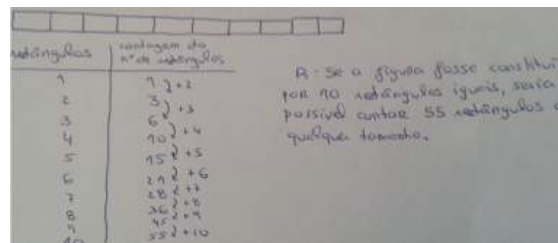 retângulos | contagem do
nº de retângulos
1 1
+2
2 3
+3
3 6
+4
4 10
+5
5 15
+6
6 21
+7
7 28
+8
8 36
+9
9 45
+10
10 55
R: Se a figura fosse constituí
por 10 retângulos iguais, seria
possível contar 55 retângulos
qualquer tamanho.